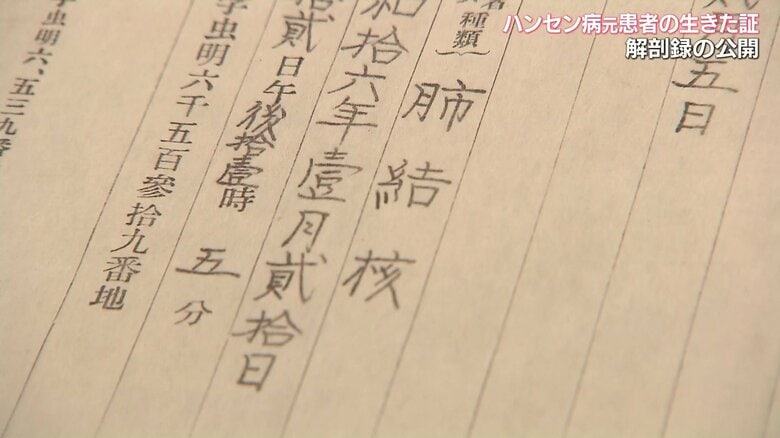 ハンセン病元患者の生きた証
解剖録の公開
五日
種類）
肺結核
和拾六年壹月貳拾日
拾貳日午後拾壹時五分
字虫明六千五百參拾九番地
字虫明六、五三九番